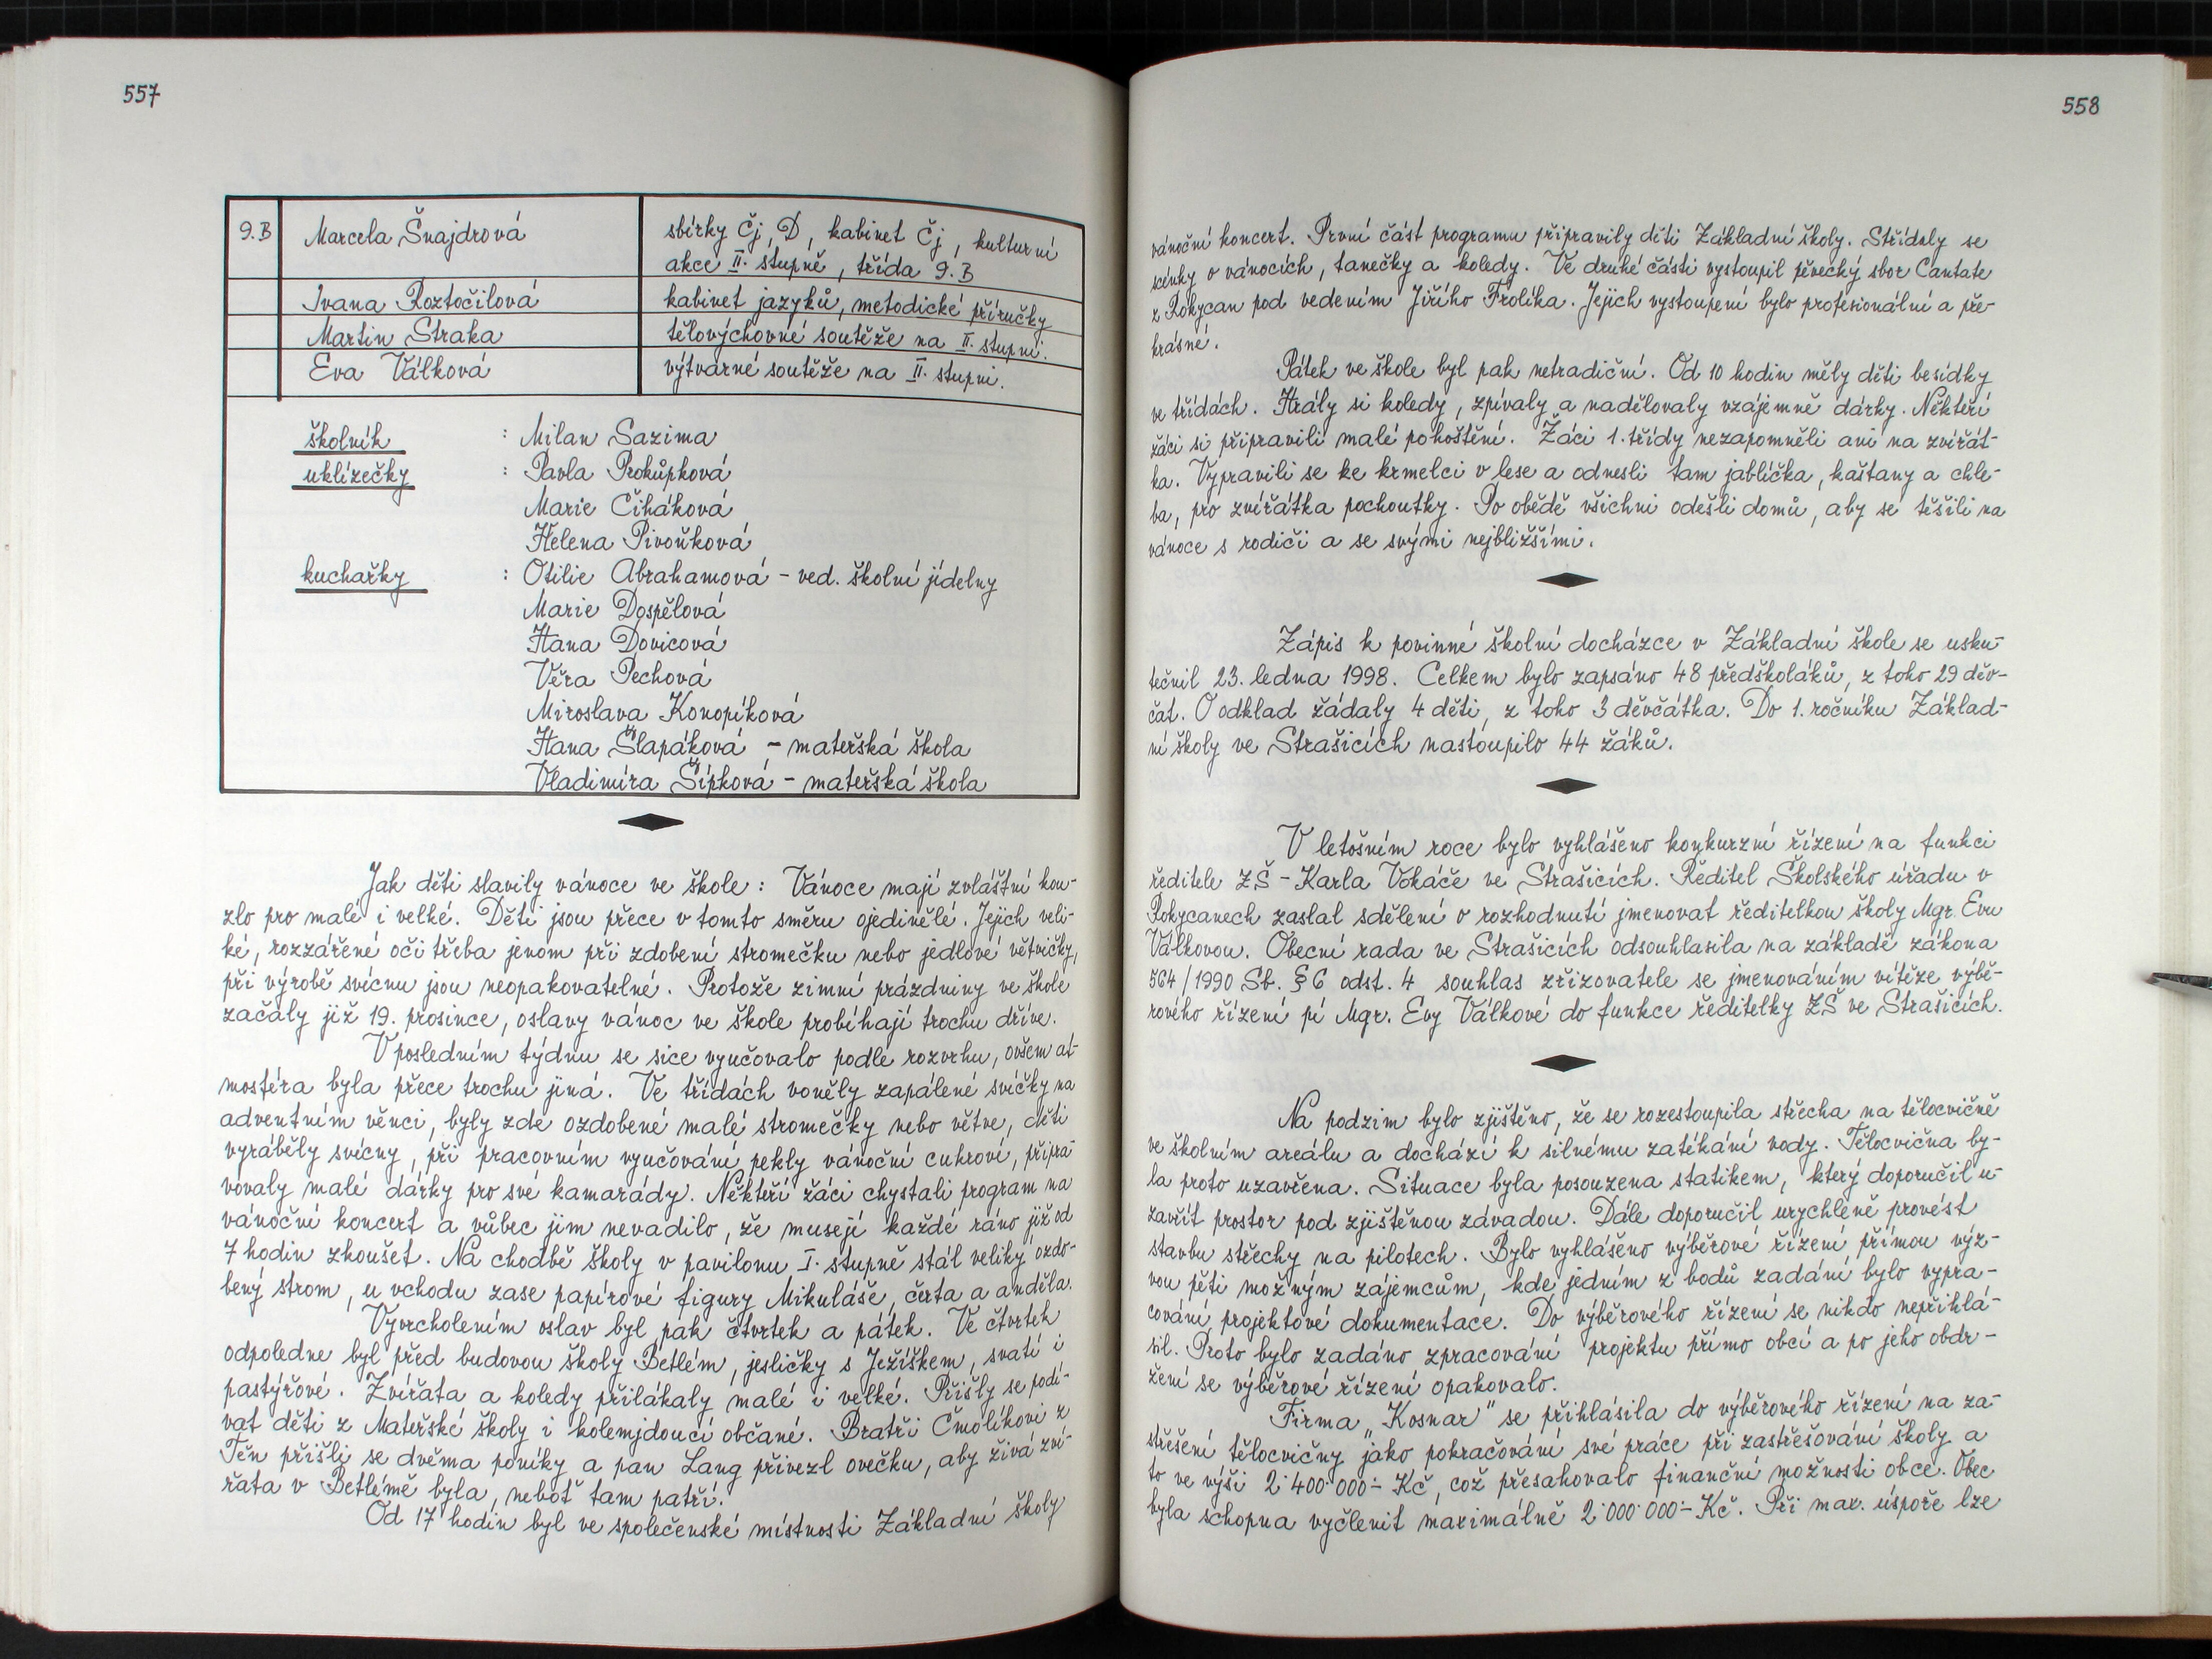 557
9.B Marcela Šnajdrová sbírky Čj, D, kabinet Čj, kulturní
akce II. stupně, třída 9.B
Ivana Roztočilová kabinet jazyků, metodické příručky
Martin Straka tělovýchovné soutěže na II. stupni.
Eva Válková výtvarné soutěže na II. stupni.
školník : Milan Sazima
uklízečky : Pavla Prokůpková
Marie Čiháková
Helena Pivoňková
kuchařky : Otilie Abrahamová - ved. školní jídelny
Marie Dospělová
Hana Dovicová
Věra Pechová
Miroslava Konopíková
Hana Šlapáková - mateřská škola
Vladimíra Šípková - mateřská škola
Jak děti slavily vánoce ve škole : Vánoce mají zvláštní kou-
zlo pro malé i velké. Děti jsou přece v tomto směru ojedinělé. Jejich veli-
ké, rozzářené oči třeba jenom při zdobení stromečku nebo jedlové větvičky,
při výrobě svícnu jsou neopakovatelné. Protože zimní prázdniny ve škole
začaly již 19. prosince, oslavy vánoc ve škole probíhají trochu dříve.
V posledním týdnu se sice vyučovalo podle rozvrhu, ovšem at-
mosféra byla přece trochu jiná. Ve třídách voněly zapálené svíčky na
adventním věnci, byly zde ozdobené malé stromečky nebo větve, děti
vyráběly svícny, při pracovním vyučování pekly vánoční cukroví, připra-
vovaly malé dárky pro své kamarády. Někteří žáci chystali program na
vánoční koncert a vůbec jim nevadilo, že musejí každé ráno již od
7 hodin zkoušet. Na chodbě školy v pavilonu I. stupně stál veliký ozdo-
bený strom, u vchodu zase papírové figury Mikuláše, čerta a anděla.
Vyvrcholením oslav byl pak čtvrtek a pátek. Ve čtvrtek
odpoledne byl před budovou školy Betlém, jesličky s Ježíškem, svatí i
pastýřové. Zvířata a koledy přilákaly malé i velké. Přišly se podí-
vat děti z Mateřské školy i kolemjdoucí občané. Bratři Čmolíkovi z
Těn přišli se dvěma poníky a pan Lang přivezl ovečku, aby živá zví-
řata v Betlémě byla, neboť tam patří.
Od 17 hodin byl ve společenské místnosti Základní školy
558
vánoční koncert. První část programu připravily děti Základní školy. Střídaly se
scénky o vánocích, tanečky a koledy. Ve druhé části vystoupil pěvecký sbor Cantate
z Rokycan pod vedením Jiřího Frolíka. Jejich vystoupení bylo profesionální a pře-
krásné.
Pátek ve škole byl pak netradiční. Od 10 hodin měly děti besídky
ve třídách. Hrály si koledy, zpívaly a nadělovaly vzájemně dárky. Někteří
žáci si připravili malé pohoštění. Žáci 1. třídy nezapomněli ani na zvířát-
ka. Vypravili se ke krmelci v lese a odnesli tam jablíčka, kaštany a chle-
ba, pro zvířátka pochoutky. Po obědě všichni odešli domů, aby se těšili na
vánoce s rodiči a se svými nejbližšími.
Zápis k povinné školní docházce v Základní škole se usku-
tečnil 23. ledna 1998. Celkem bylo zapsáno 48 předškoláků, z toho 29 děv-
čat. O odklad žádaly 4 děti, z toho 3 děvčátka. Do 1. ročníku Základ-
ní školy ve Strašicích nastoupilo 44 žáků.
V letošním roce bylo vyhlášeno konkurzní řízení na funkci
ředitele ZŠ - Karla Vokáče ve Strašicích. Ředitel Školského úřadu v
Rokycanech zaslal sdělení o rozhodnutí jmenovat ředitelkou školy Mgr. Evu
Válkovou. Obecní rada ve Strašicích odsouhlasila na základě zákona
564/1990 Sb. § 6 odst. 4 souhlas zřizovatele se jmenováním vítěze výbě-
rového řízení pí Mgr. Evy Válkové do funkce ředitelky ZŠ ve Strašicích.
Na podzim bylo zjištěno, že se rozestoupila střecha na tělocvičně
ve školním areálu a dochází k silnému zatékání vody. Tělocvična by-
la proto uzavřena. Situace byla posouzena statikem, který doporučil u-
zavřít prostor pod zjištěnou závadou. Dále doporučil urychleně provést
stavbu střechy na pilotech. Bylo vyhlášeno výběrové řízení přímou výz-
vou pěti možným zájemcům, kde jedním z bodů zadání bylo vypra-
cování projektové dokumentace. Do výběrového řízení se nikdo nepřihlá-
sil. Proto bylo zadáno zpracování projektu přímo obcí a po jeho obdr-
žení se výběrové řízení opakovalo.
Firma „Kosnar" se přihlásila do výběrového řízení na za-
střešení tělocvičny jako pokračování své práce při zastřešování školy a
to ve výši 2˙400˙000- Kč, což přesahovalo finanční možnosti obce. Obec
byla schopna vyčlenit maximálně 2˙000˙000- Kč. Při max. úspoře lze